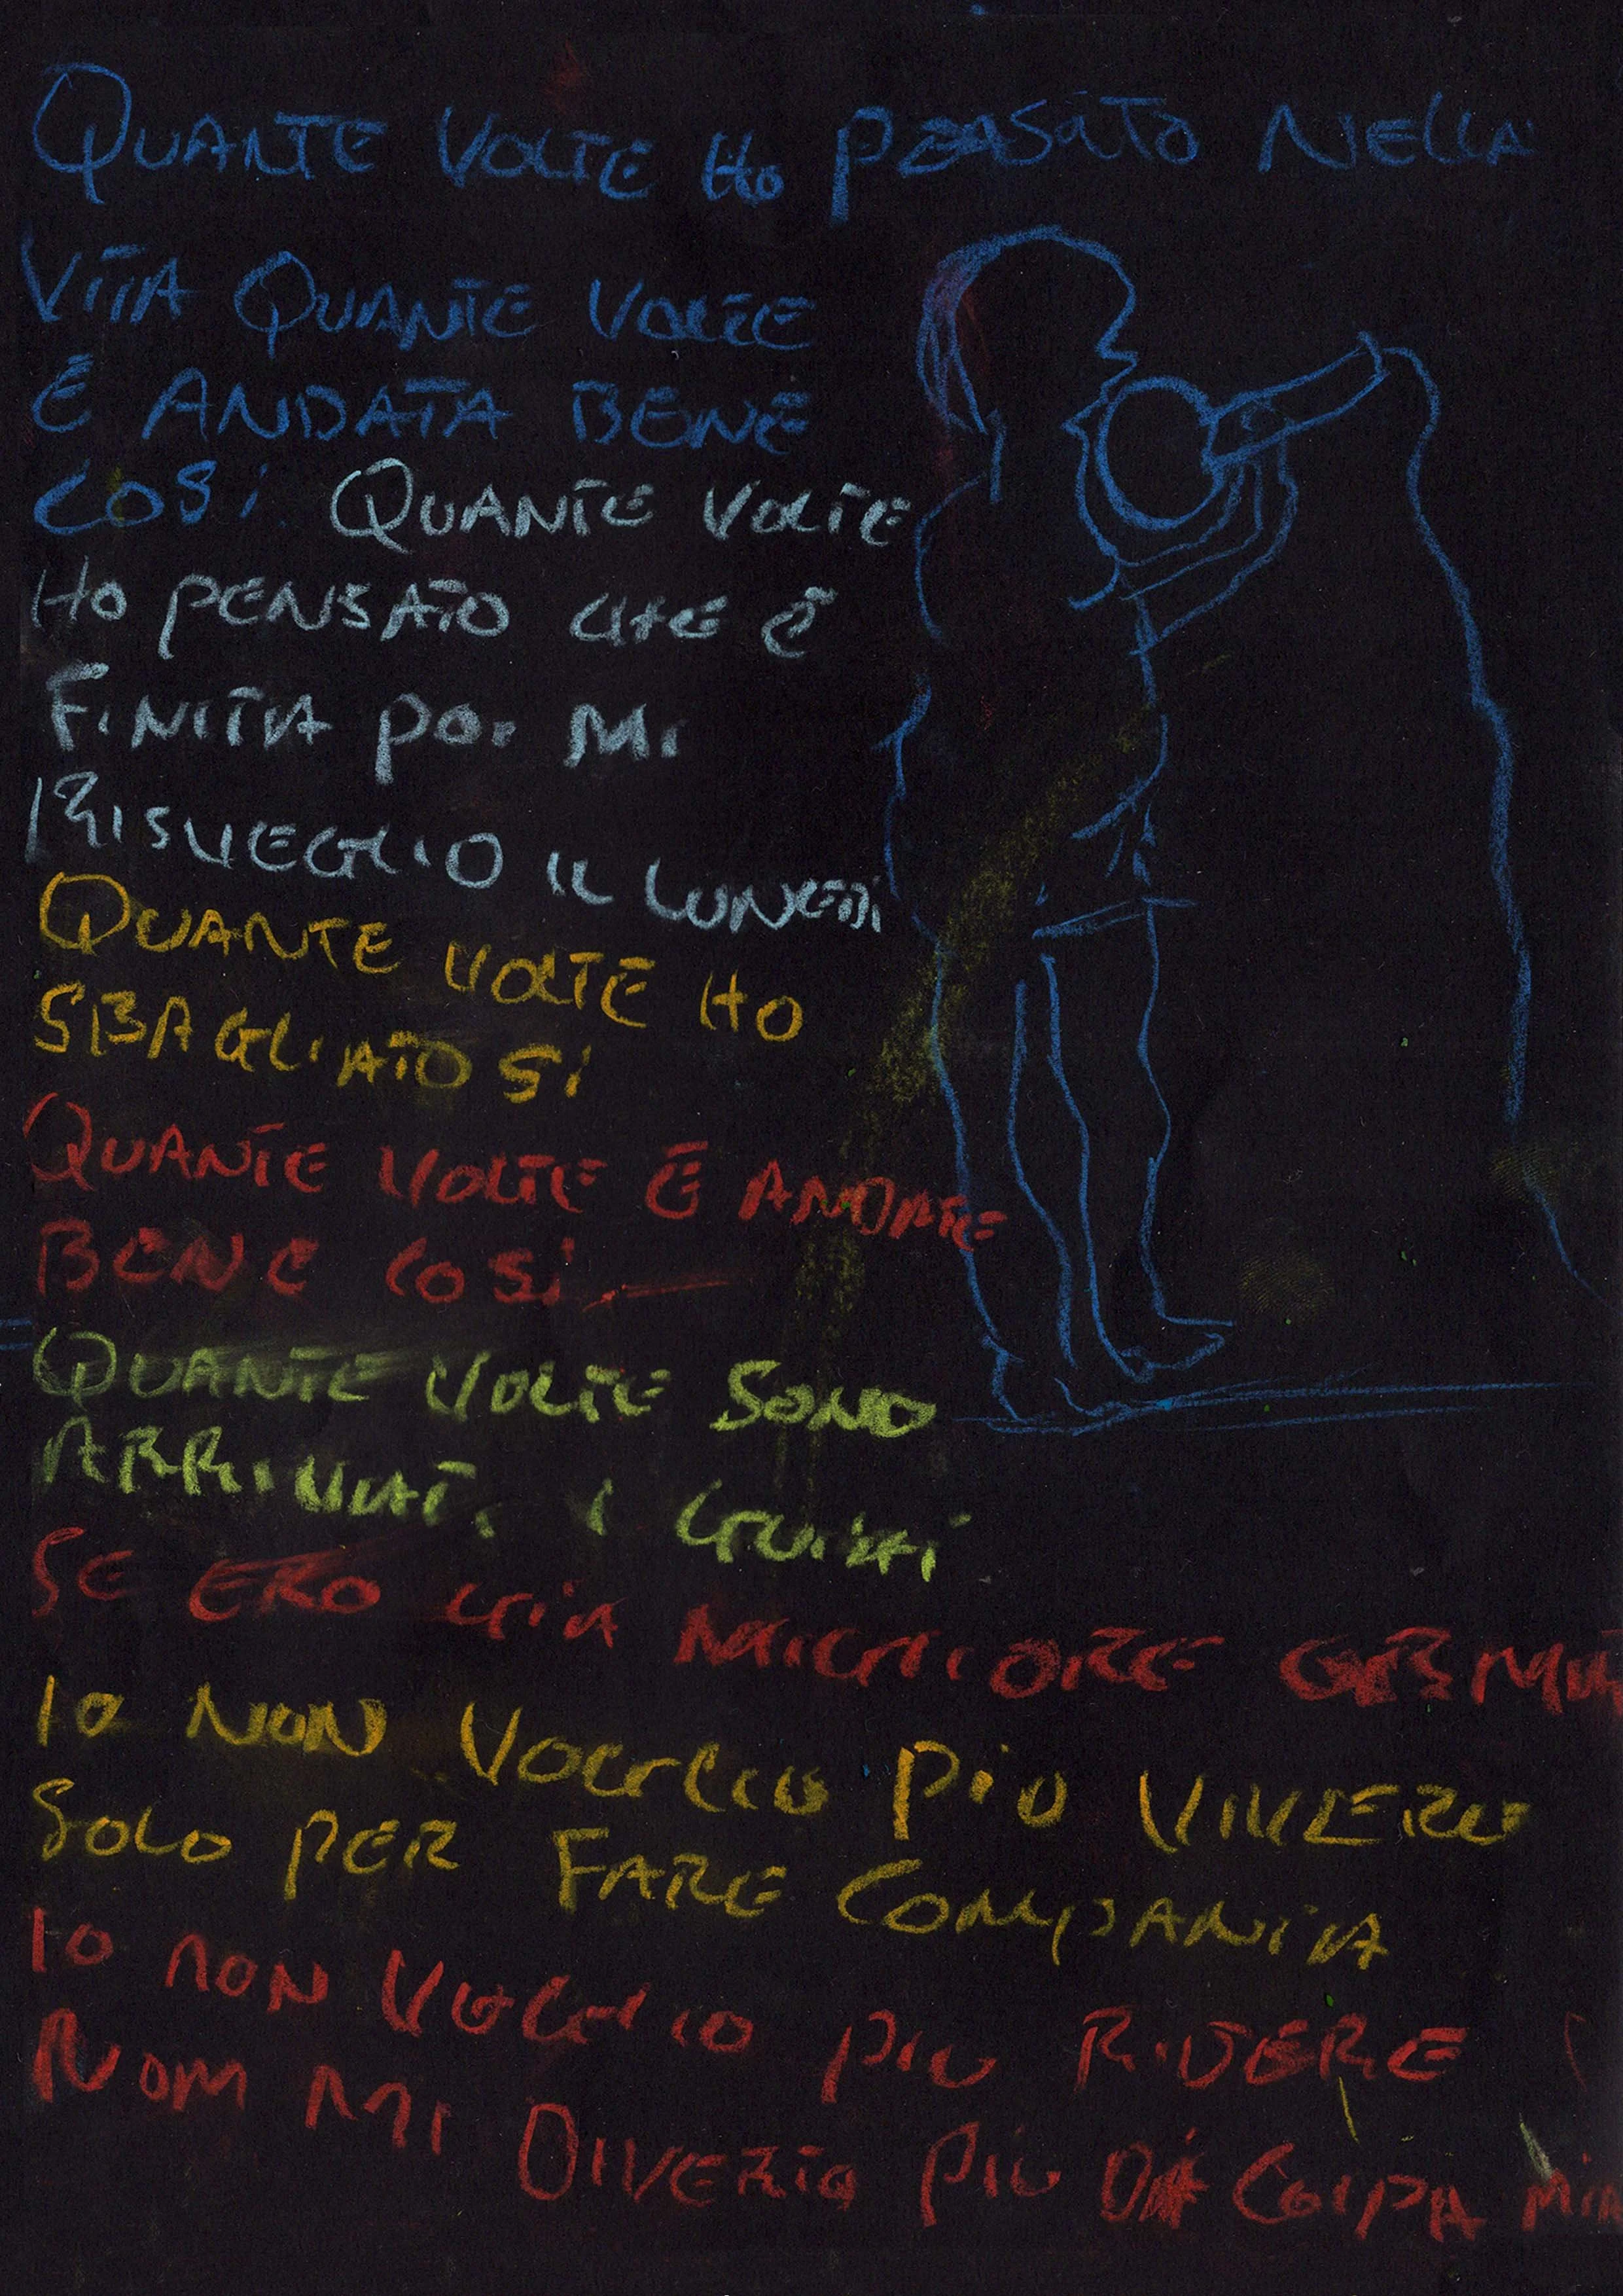 QUANTE VOLTE HO PENSATO NELLA
VITA QUANTE VOLTE
È ANDATA BENE
COSÌ QUANTE VOLTE
HO PENSATO CHE È
FINITA POI MI
RISVEGLIO IL LUNEDÌ
QUANTE VOLTE HO
SBAGLIATO SI
QUANTE VOLTE È ANDATE
BENE COSÌ
QUANTE VOLTE SONO
ARRIVATI I GUAI
SE ERO GIA MIGLIORE
IO NON VOGLIO PIÙ VIVERE
SOLO PER FARE COMPANIA
IO NON VOGLIO PIU RIDERE
NOM MI DIVERTO PIÙ DÀ COLPA MIA